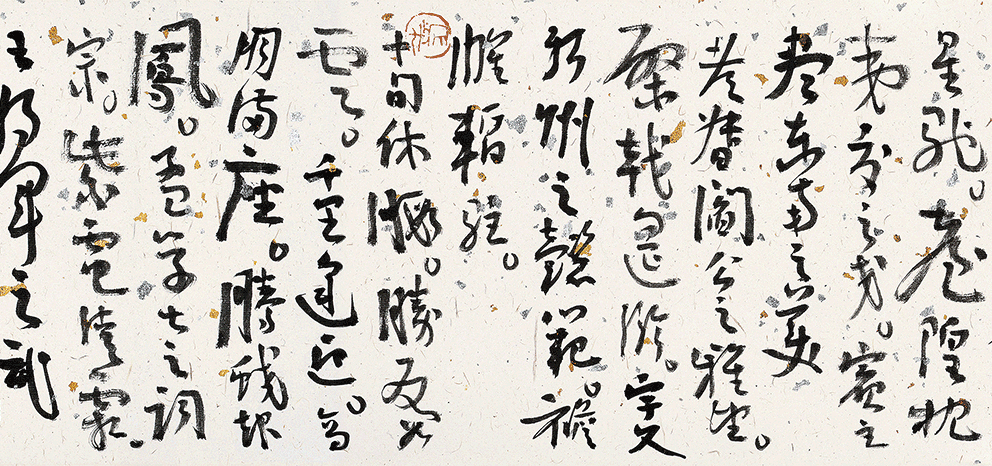 星馳。臺隍枕
夷夏之交。賓主
盡東南之美
都督閻公之雅望。
棨戟遥臨。宇文
新州之懿範。襜
帷暫駐。
十旬休暇。勝友如
雲。千里逢迎。高
朋滿座。騰蛟起
鳳。孟學士之詞
宗。紫電清霜。
王將軍之武